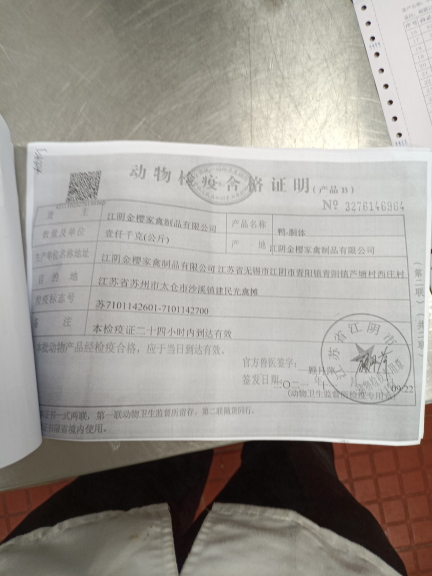 动物检疫合格证明(产品B)
№ 3276146964
货主 江阴金樱家禽制品有限公司 产品名称 鸭-胴体
数量及单位 壹仟千克(公斤) 产地 江阴金樱家禽制品有限公司
生产单位名称地址 江阴金樱家禽制品有限公司江苏省无锡市江阴市青阳镇青阳镇芦塘村西庄村
目的地 江苏省苏州市太仓市沙溪镇建民光禽摊
检疫标志号 苏7101142601-7101142700
备注 本检疫证二十四小时内到达有效
本批动物产品经检疫合格，应于当日到达有效。
官方兽医签字：
签发日期：二〇二
09:22
(动物卫生监督所检疫专用章)
一式两联，第一联动物卫生监督所留存，第二联随货同行。
境内使用。
第二联
江苏省江阴市